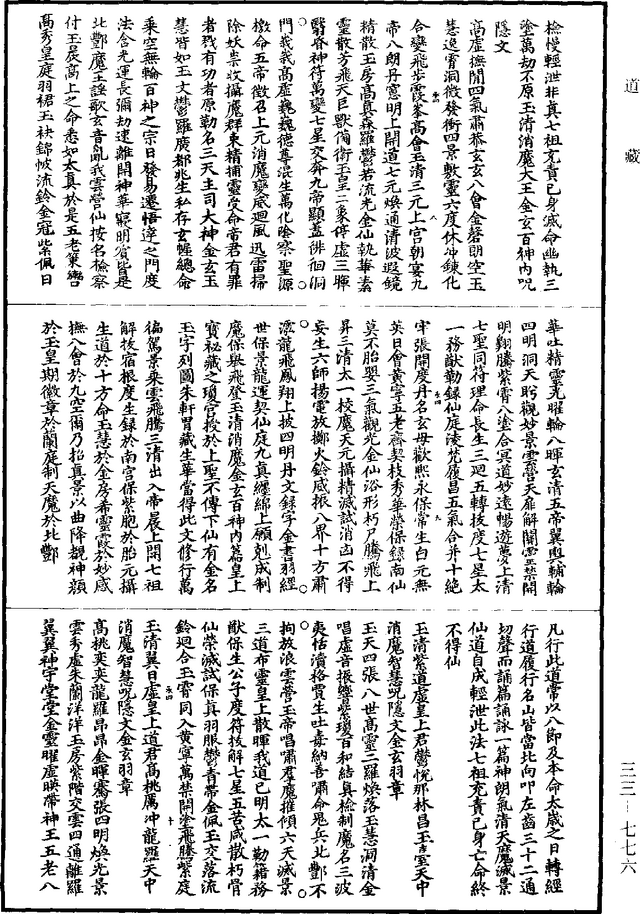 檢慢輕泄非真七祖充責己身滅命幽執三
塗萬劫不原玉清消魔大王金玄百神內呪
隱文
高虛撫閑四氣肅恭玄玄八會金磬朗空玉
慧逸霄洞微發衝四景敷靈六度休沖鍊化
合變飛步霞峯高會玉清三元上宮朝宴九
帝八朗丹窻明上開道七元煥通清波遐鏡
精散玉房高真森羅鬱若流光金仙執華素
靈散方飛天巨獸備衛玉皇二象停虛三暉
翳眷神符萬變七星交奔九帝顯蓋徘徊洞
門義義高虛巍巍德尊混生萬化陰察聖源
檄命五帝徵召上元消魔變慼迴風迅雷掃
除妖祟收攝魔群束精捕靈受命帝君有罪
者戮有功者原勒名三天主司大神金玄玉
慧皆如玉文鬱羅廣都兆生私存玄幄總命
乘空無輪百神之宗日發易遷悟達之門度
法含光運長彌劫速離開神華寢明賓皆是
北酆魔王謠歌玄音亂我雲營仙按名檢察
付玉晨高上之命悉如太真於是五老策轡
高秀皇庭羽裙玉袂錦帔流鈴金冠紫佩日
華吐精靈光曜輪八暉玄清五帝翼輿輔輪
四明洞天眄觀妙景雲營天扉解關靈禁開
明翔騰紫霄八塗合冥道妙遠暢遊夢上清
七聖同符理命長生三迴五轉拔度七星太
一務猷勒錄仙庭淩梵履昌五氣合并十絕
牢張開度丹名玄母歡熙永保常生白元無
英日會黃寧五老齊契枝秀華榮保錄南仙
莫不胎嬰三氣觀光金仙浴形朽尸騰飛上
昇三清太一校魔天元攝精滅試消凶不得
妄生六師揚電放擲火鈴威振八界十方肅
瀿龍飛鳳翔上披四明丹文錄字金書羽經
世保景龍運契仙庭九真纏綿上願剋成制
魔保舉飛登玉清消魔金玄百神內篇皇上
寶祕藏之瓊宮授於上聖不傳下仙有金名
玉字列圖朱軒胃藏生華當得此文修行萬
徧駕景乘雲飛騰三清出入帝晨上開七祖
解拔宿根度生錄於南宮保紫胞於胎元攝
生道於十方命玉慧於金房希靈霞於妙感
撫八會於九空爾乃招真景以曲降覩神顏
於玉皇期徽章於蘭庭制天魔於北酆
凡行此道常以八節及本命太歲之日轉經
行道履行名山皆當北向叩左齒三十二通
切聲而誦篇誦詠一篇神朗氣清天魔滅景
仙道自成輕泄此法七祖充責己身亡命終
不得仙
玉清紫道虛皇上君鬱悅那林昌玉室天中
消魔智慧呪隱文金玄羽章
玉天四張八世高靈二羅煥落玉慧洞清金
唱虛音振響紫瓊百和結真檢制魔名三波
夷恬瀆格貫生吐毒納善嘯命鬼兵北酆不
拘放浪雲營玉帝唱肅羣魔摧傾六天滅景
三道布靈皇上散暉我道已明太一勤籍務
猷保生公子度符拔解七星五苦咸散朽骨
仙榮滅試保真羽服鬱青帶金佩玉交落流
鈴迴合玉霄同入黃寧萬禁開塗飛騰紫庭
玉清翼日虛皇上道君高桃厲沖龍羅天中
消魔智慧呪隱文金玄羽章
高桃奕奕龍羅昂昂金暉騫張四明煥光景
雲秀虛朱蘭洋洋玉房紫階交雲四通離羅
翼翼神宇堂堂金靈曜虛暎帶神王五老八
道藏
三三－七七六